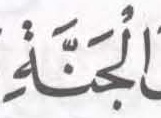 الْجَنَّةِ